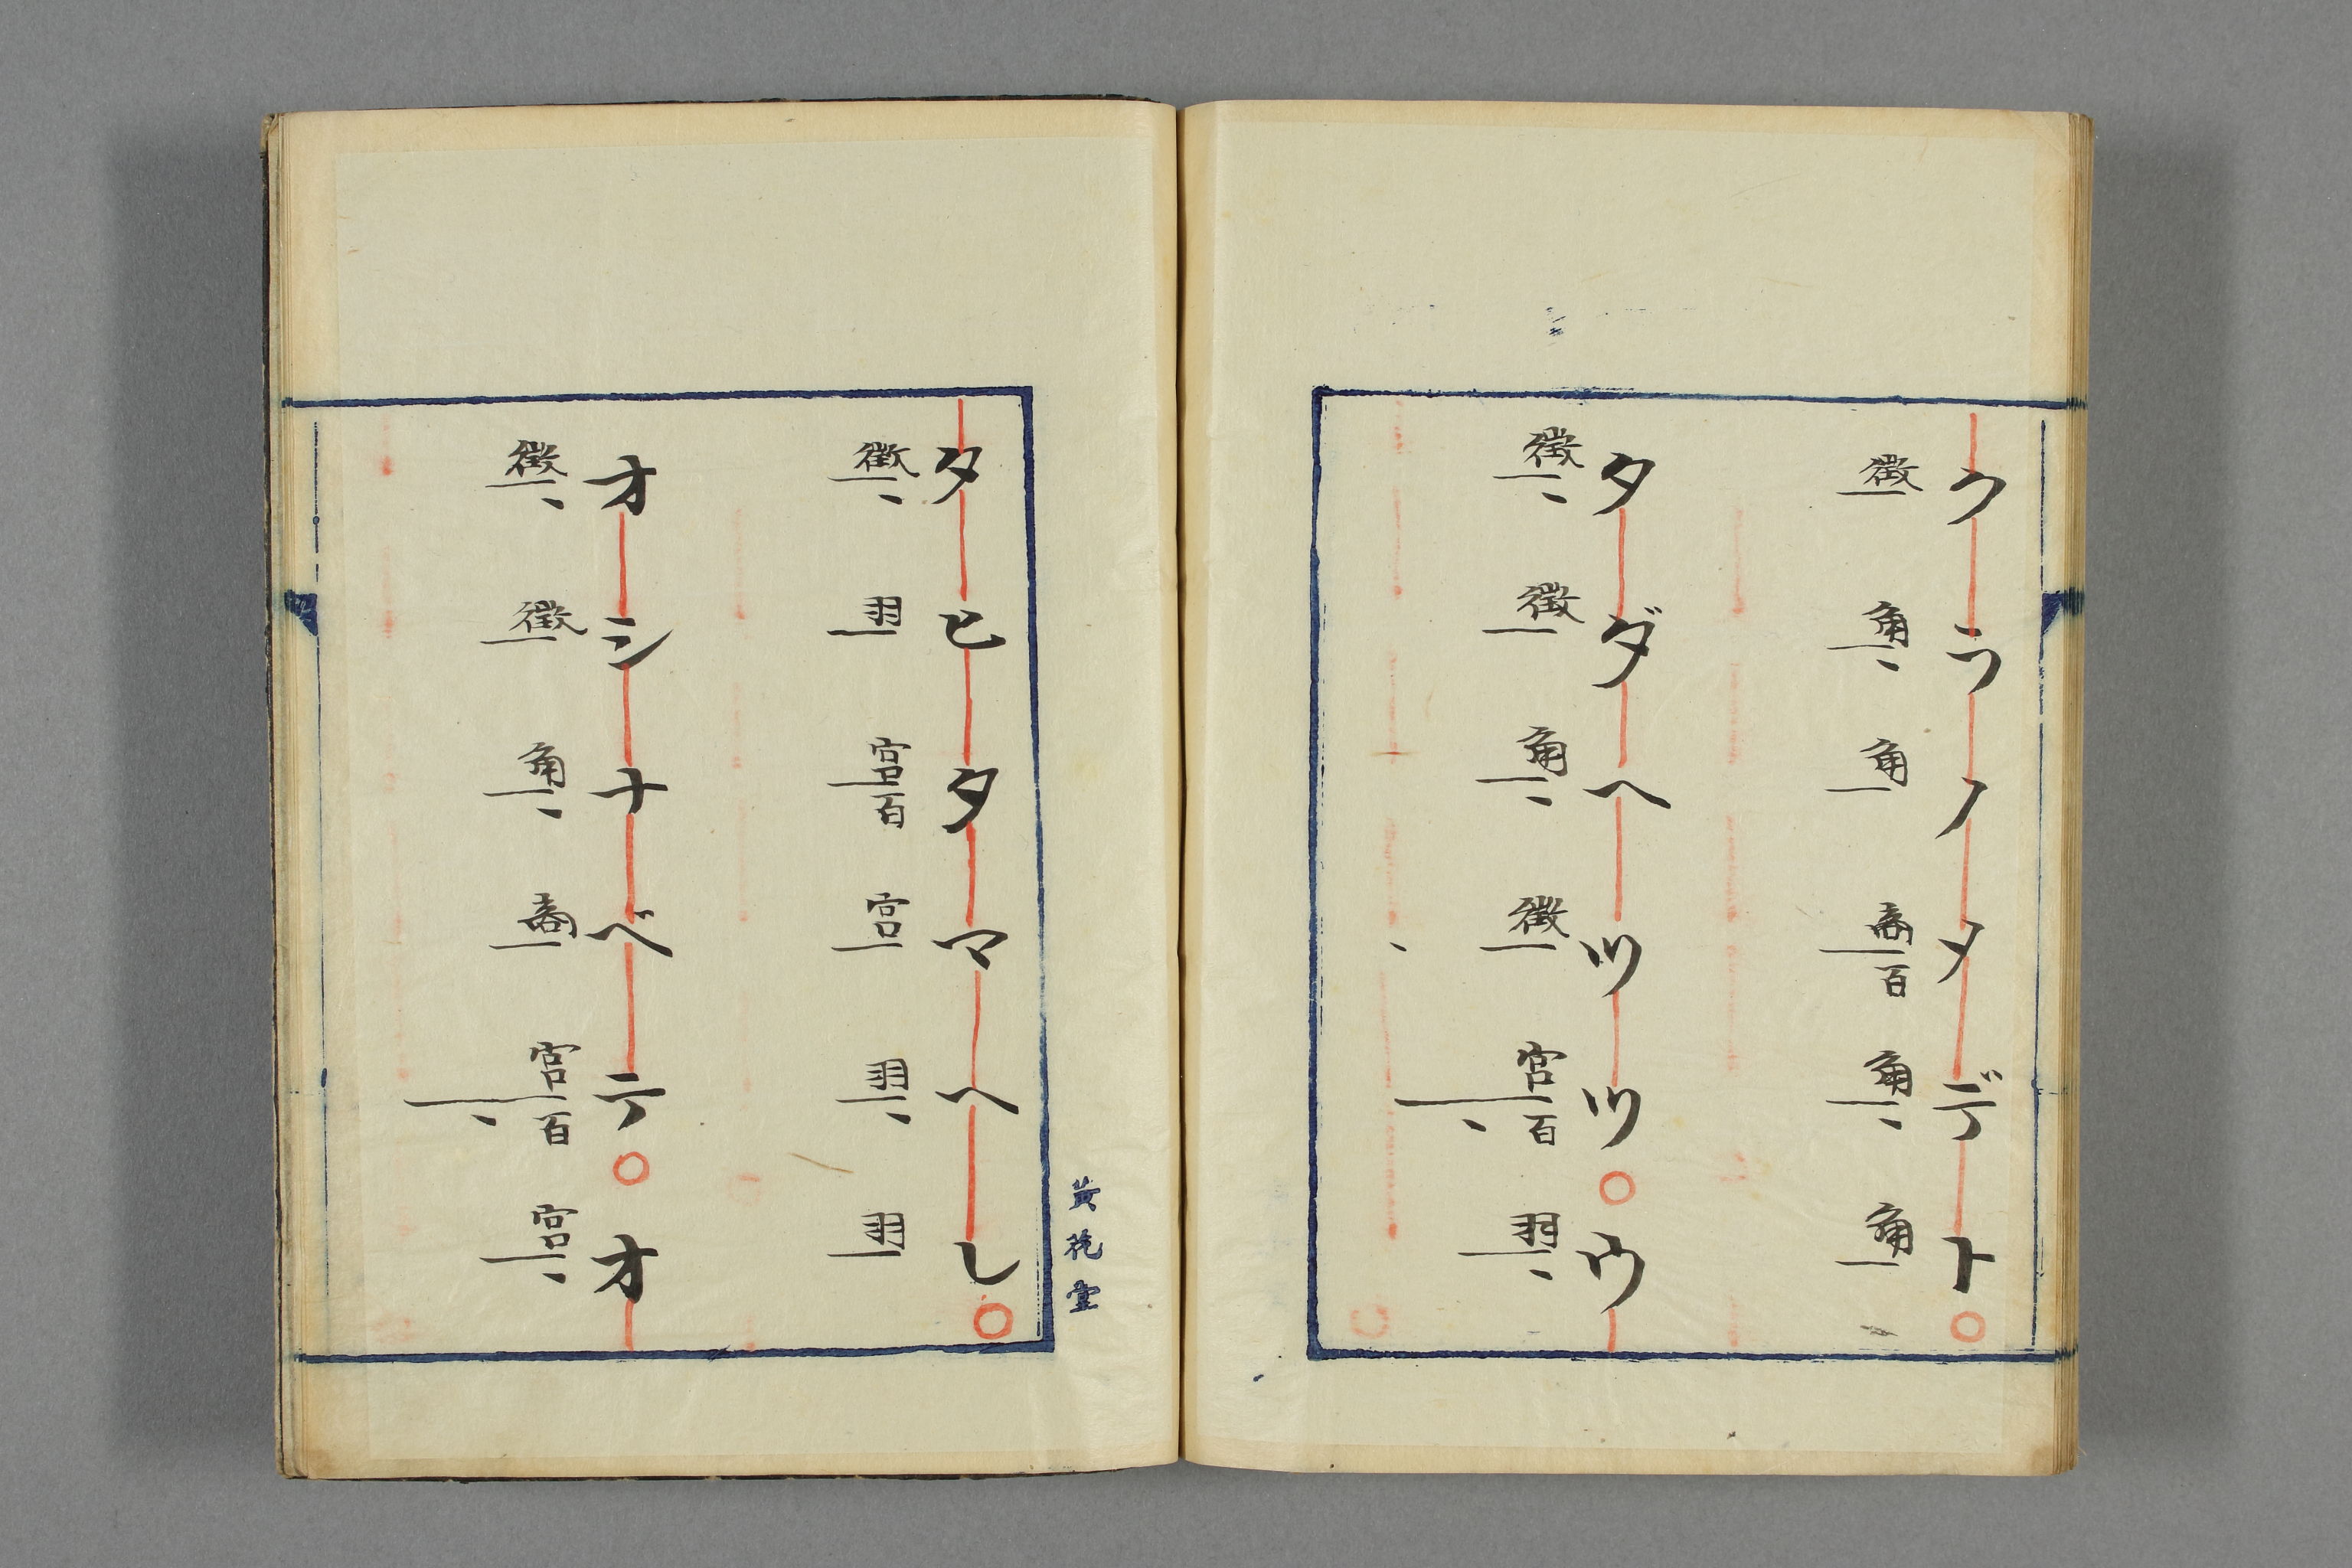 クラノメデト○
徴角角商百角角
タダヘツツ○ウ
徴徴角徴宮百羽
タヒタマヘし○
徴羽宮百宮羽羽
オシナベテ○オ
徴徴角商宮百宮